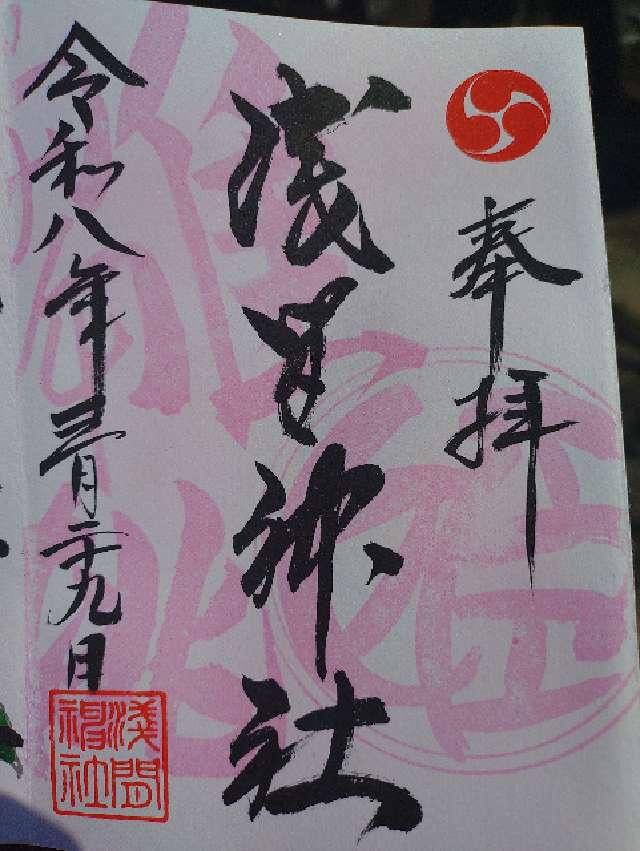 奉拝
浅間神社
令和八年三月二十九日
淺間
神社